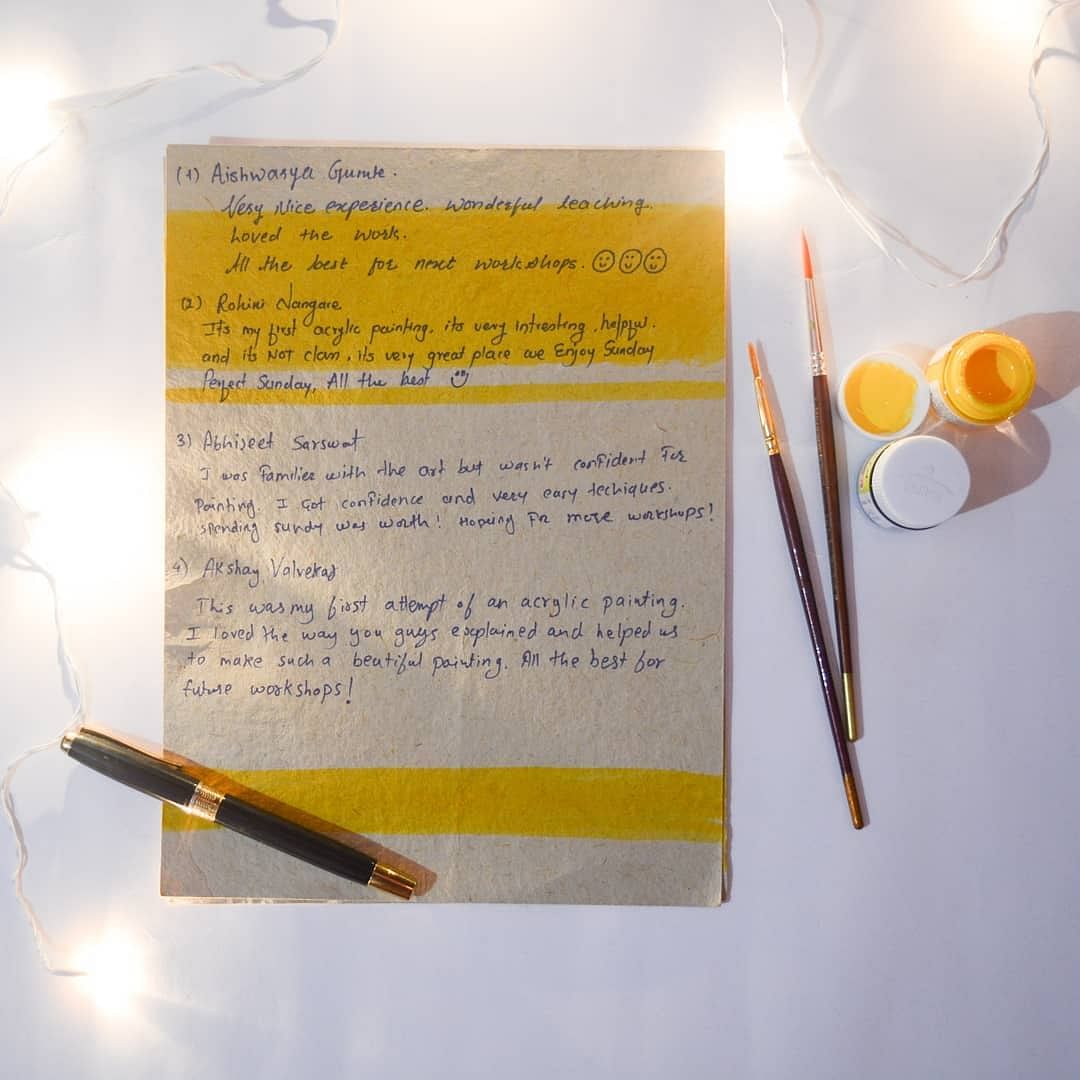 (1) Aishwarya Gumte.
Very Nice experience. wonderful teaching.
Loved the work.
All the best for next workshops. ☺☺☺
(2) Rohini Nangare
It's my first acrylic painting. its very intresting, helpful.
and its NOT clam, its very great place we Enjoy Sunday
Perfect Sunday, All the best ☺
3) Abhijeet Sarswat
I was familier with the art but wasn't confident For
Painting. I Got confidence and very easy techiques.
spending sundy was worth! Hopeing For more workshops!
4) Akshay Valvekar
This was my first attempt of an acrylic painting.
I loved the way you guys explained and helped us
to make such a beatiful painting. All the best for
future workshops!